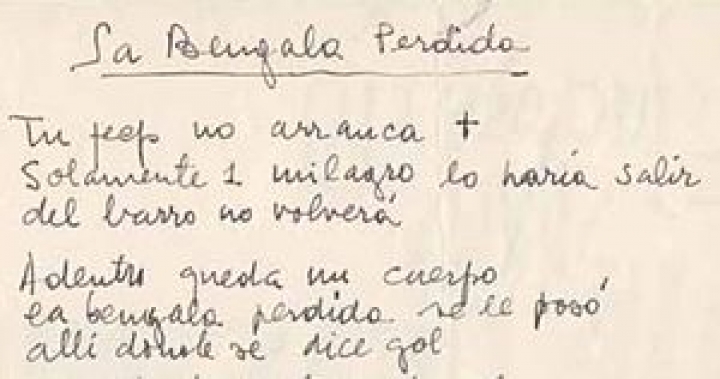 La Bengala Perdida
Tu jeep no arranca +
Solamente 1 milagro lo haria salir
del barro no volverá
Adentro queda un cuerpo
la bengala perdida se le posó
alli donde se dice gol